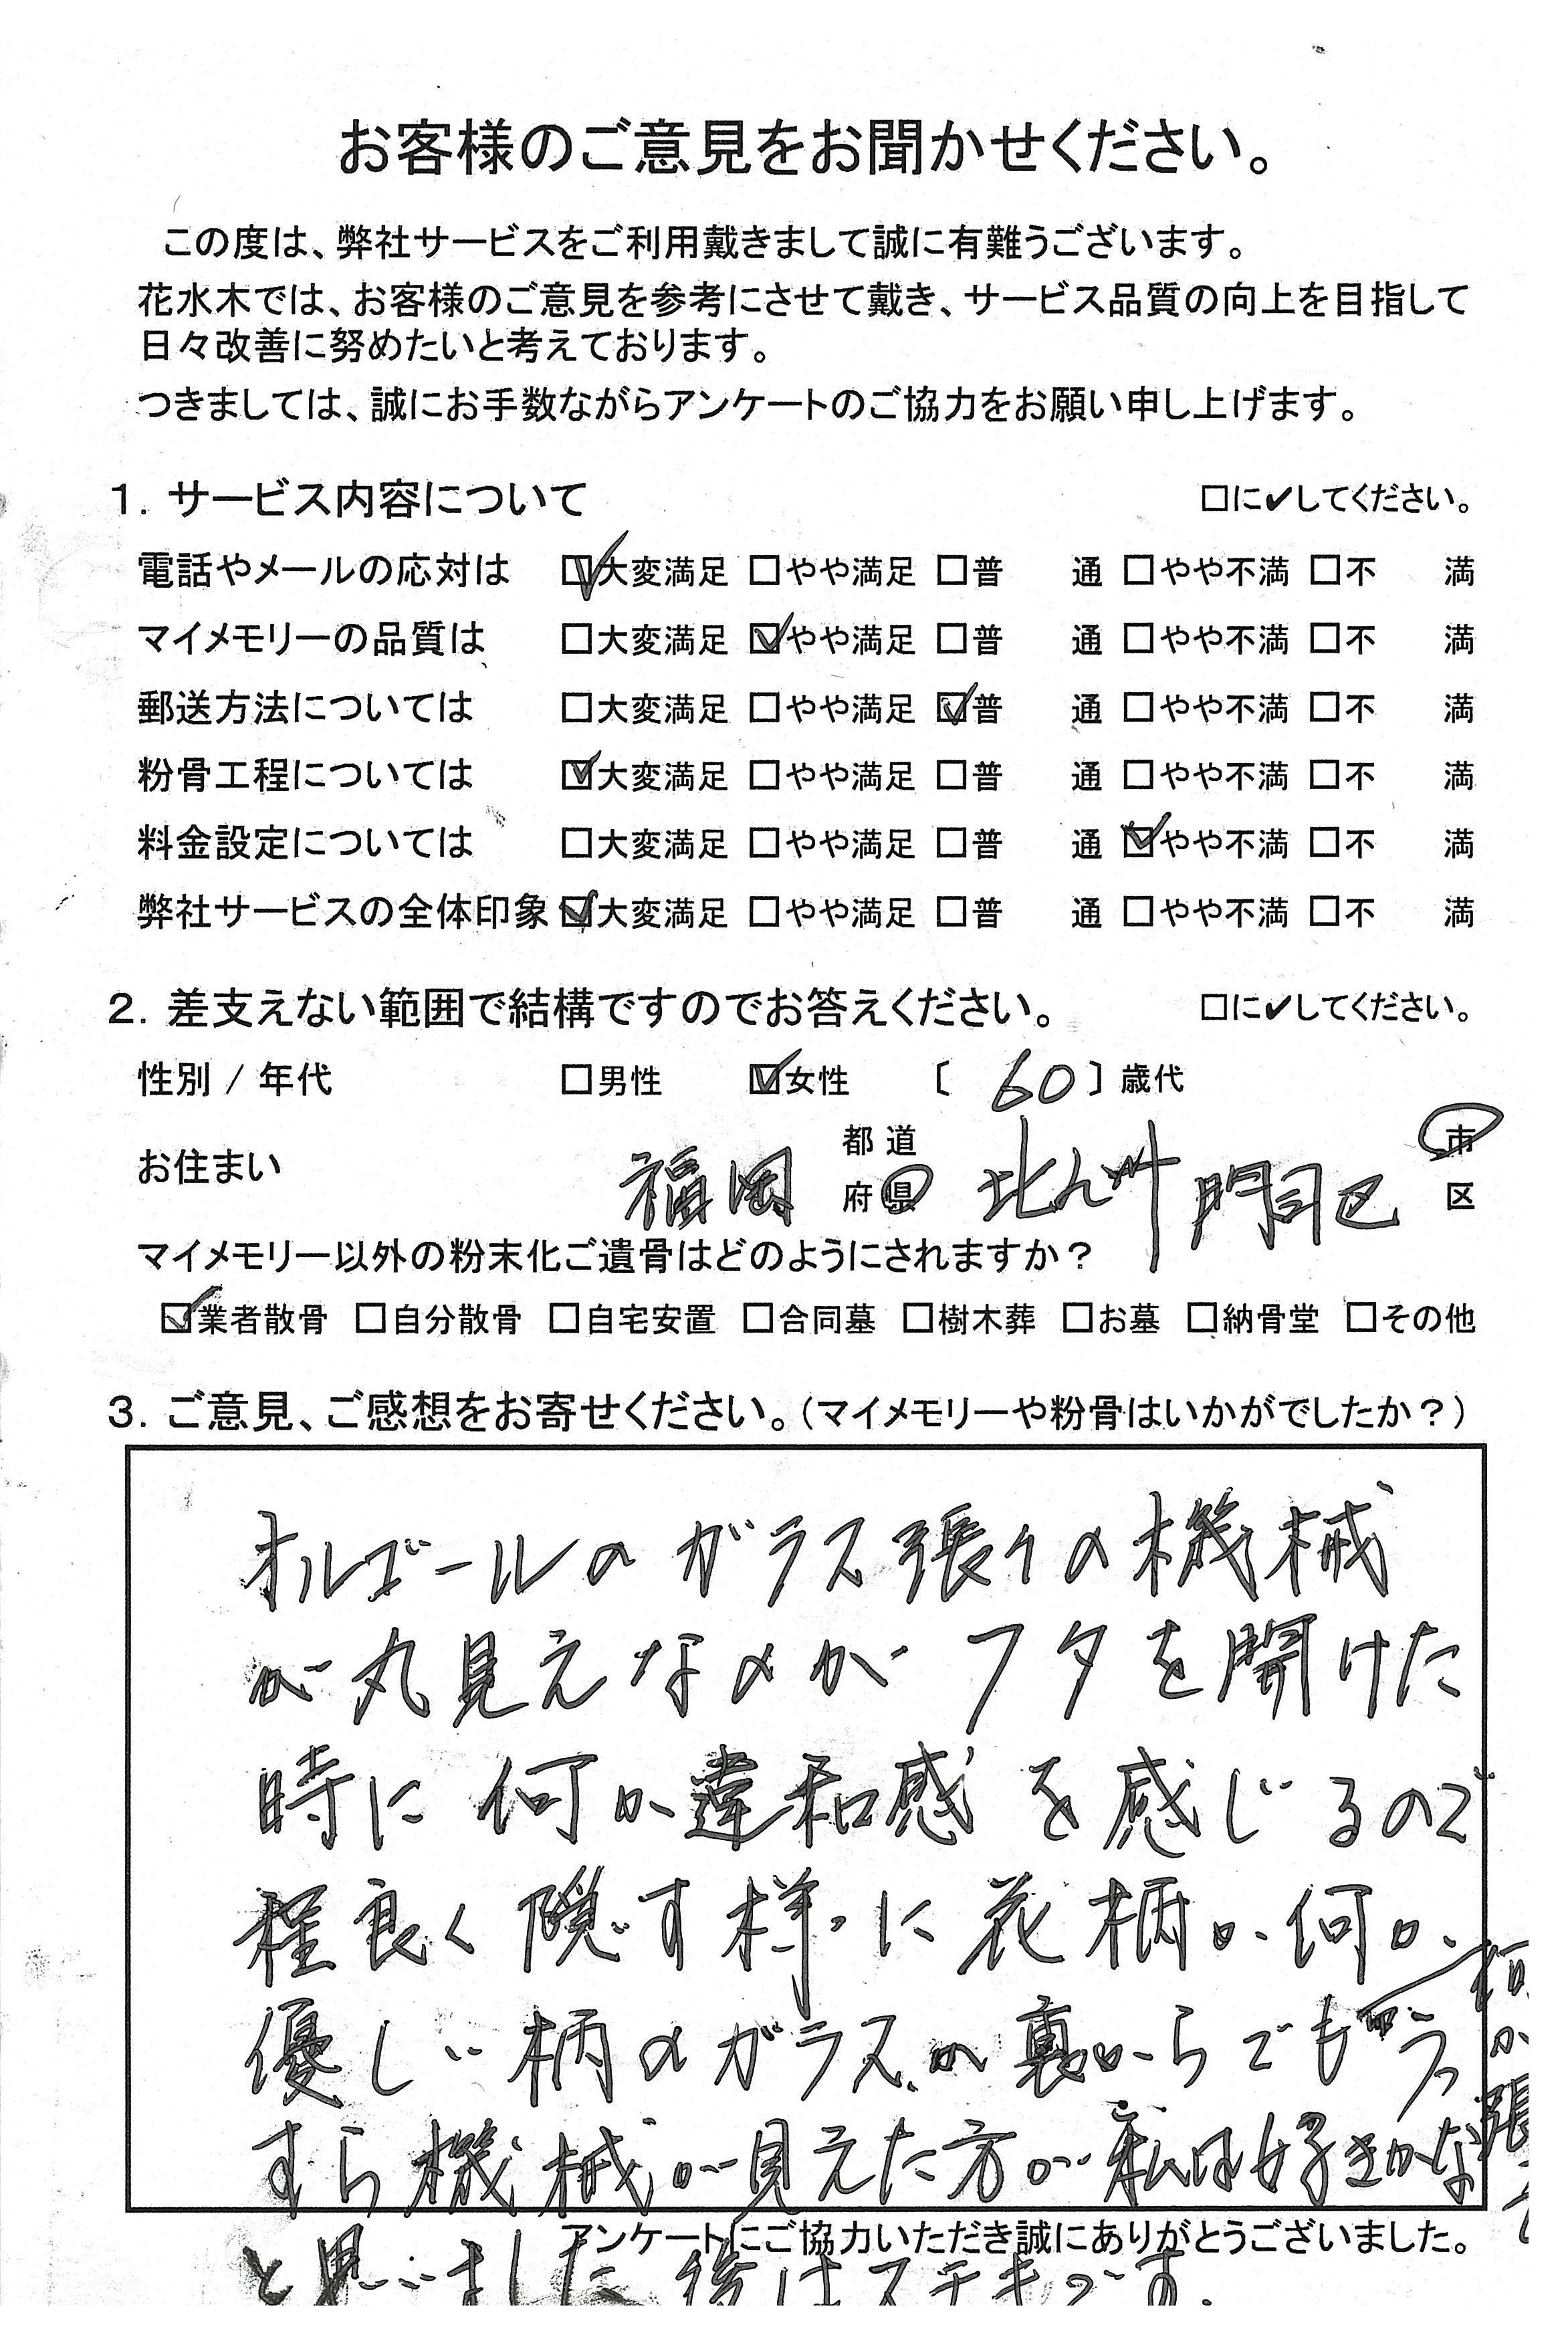 お客様のご意見をお聞かせください。
この度は、弊社サービスをご利用戴きまして誠に有難うございます。
花水木では、お客様のご意見を参考にさせて戴き、サービス品質の向上を目指して
日々改善に努めたいと考えております。
つきましては、誠にお手数ながらアンケートのご協力をお願い申し上げます。
1. サービス内容について □に✔してください。
電話やメールの応対は ☑大変満足 □やや満足 □普 通 □やや不満 □不 満
マイメモリーの品質は □大変満足 ☑やや満足 □普 通 □やや不満 □不 満
郵送方法については □大変満足 □やや満足 ☑普 通 □やや不満 □不 満
粉骨工程については ☑大変満足 □やや満足 □普 通 □やや不満 □不 満
料金設定については □大変満足 □やや満足 □普 通 ☑やや不満 □不 満
弊社サービスの全体印象 ☑大変満足 □やや満足 □普 通 □やや不満 □不 満
2. 差支えない範囲で結構ですのでお答えください。 □に✔してください。
性別 / 年代 □男性 ☑女性 〔 60 〕歳代
お住まい 福岡 都道府県 北九州 門司区 市区
マイメモリー以外の粉末化ご遺骨はどのようにされますか？
☑業者散骨 □自分散骨 □自宅安置 □合同墓 □樹木葬 □お墓 □納骨堂 □その他
3. ご意見、ご感想をお寄せください。（マイメモリーや粉骨はいかがでしたか？）
オルゴールのガラス張りの機械
が丸見えなのが フタを開けた
時に 何か違和感を感じるので
程良く隠す様に花柄か何か
優しい柄のガラスか裏からでもうっ
すら機械が見えた方が私は好きかな
と思いました 後はステキです.
アンケートにご協力いただき誠にありがとうございました。